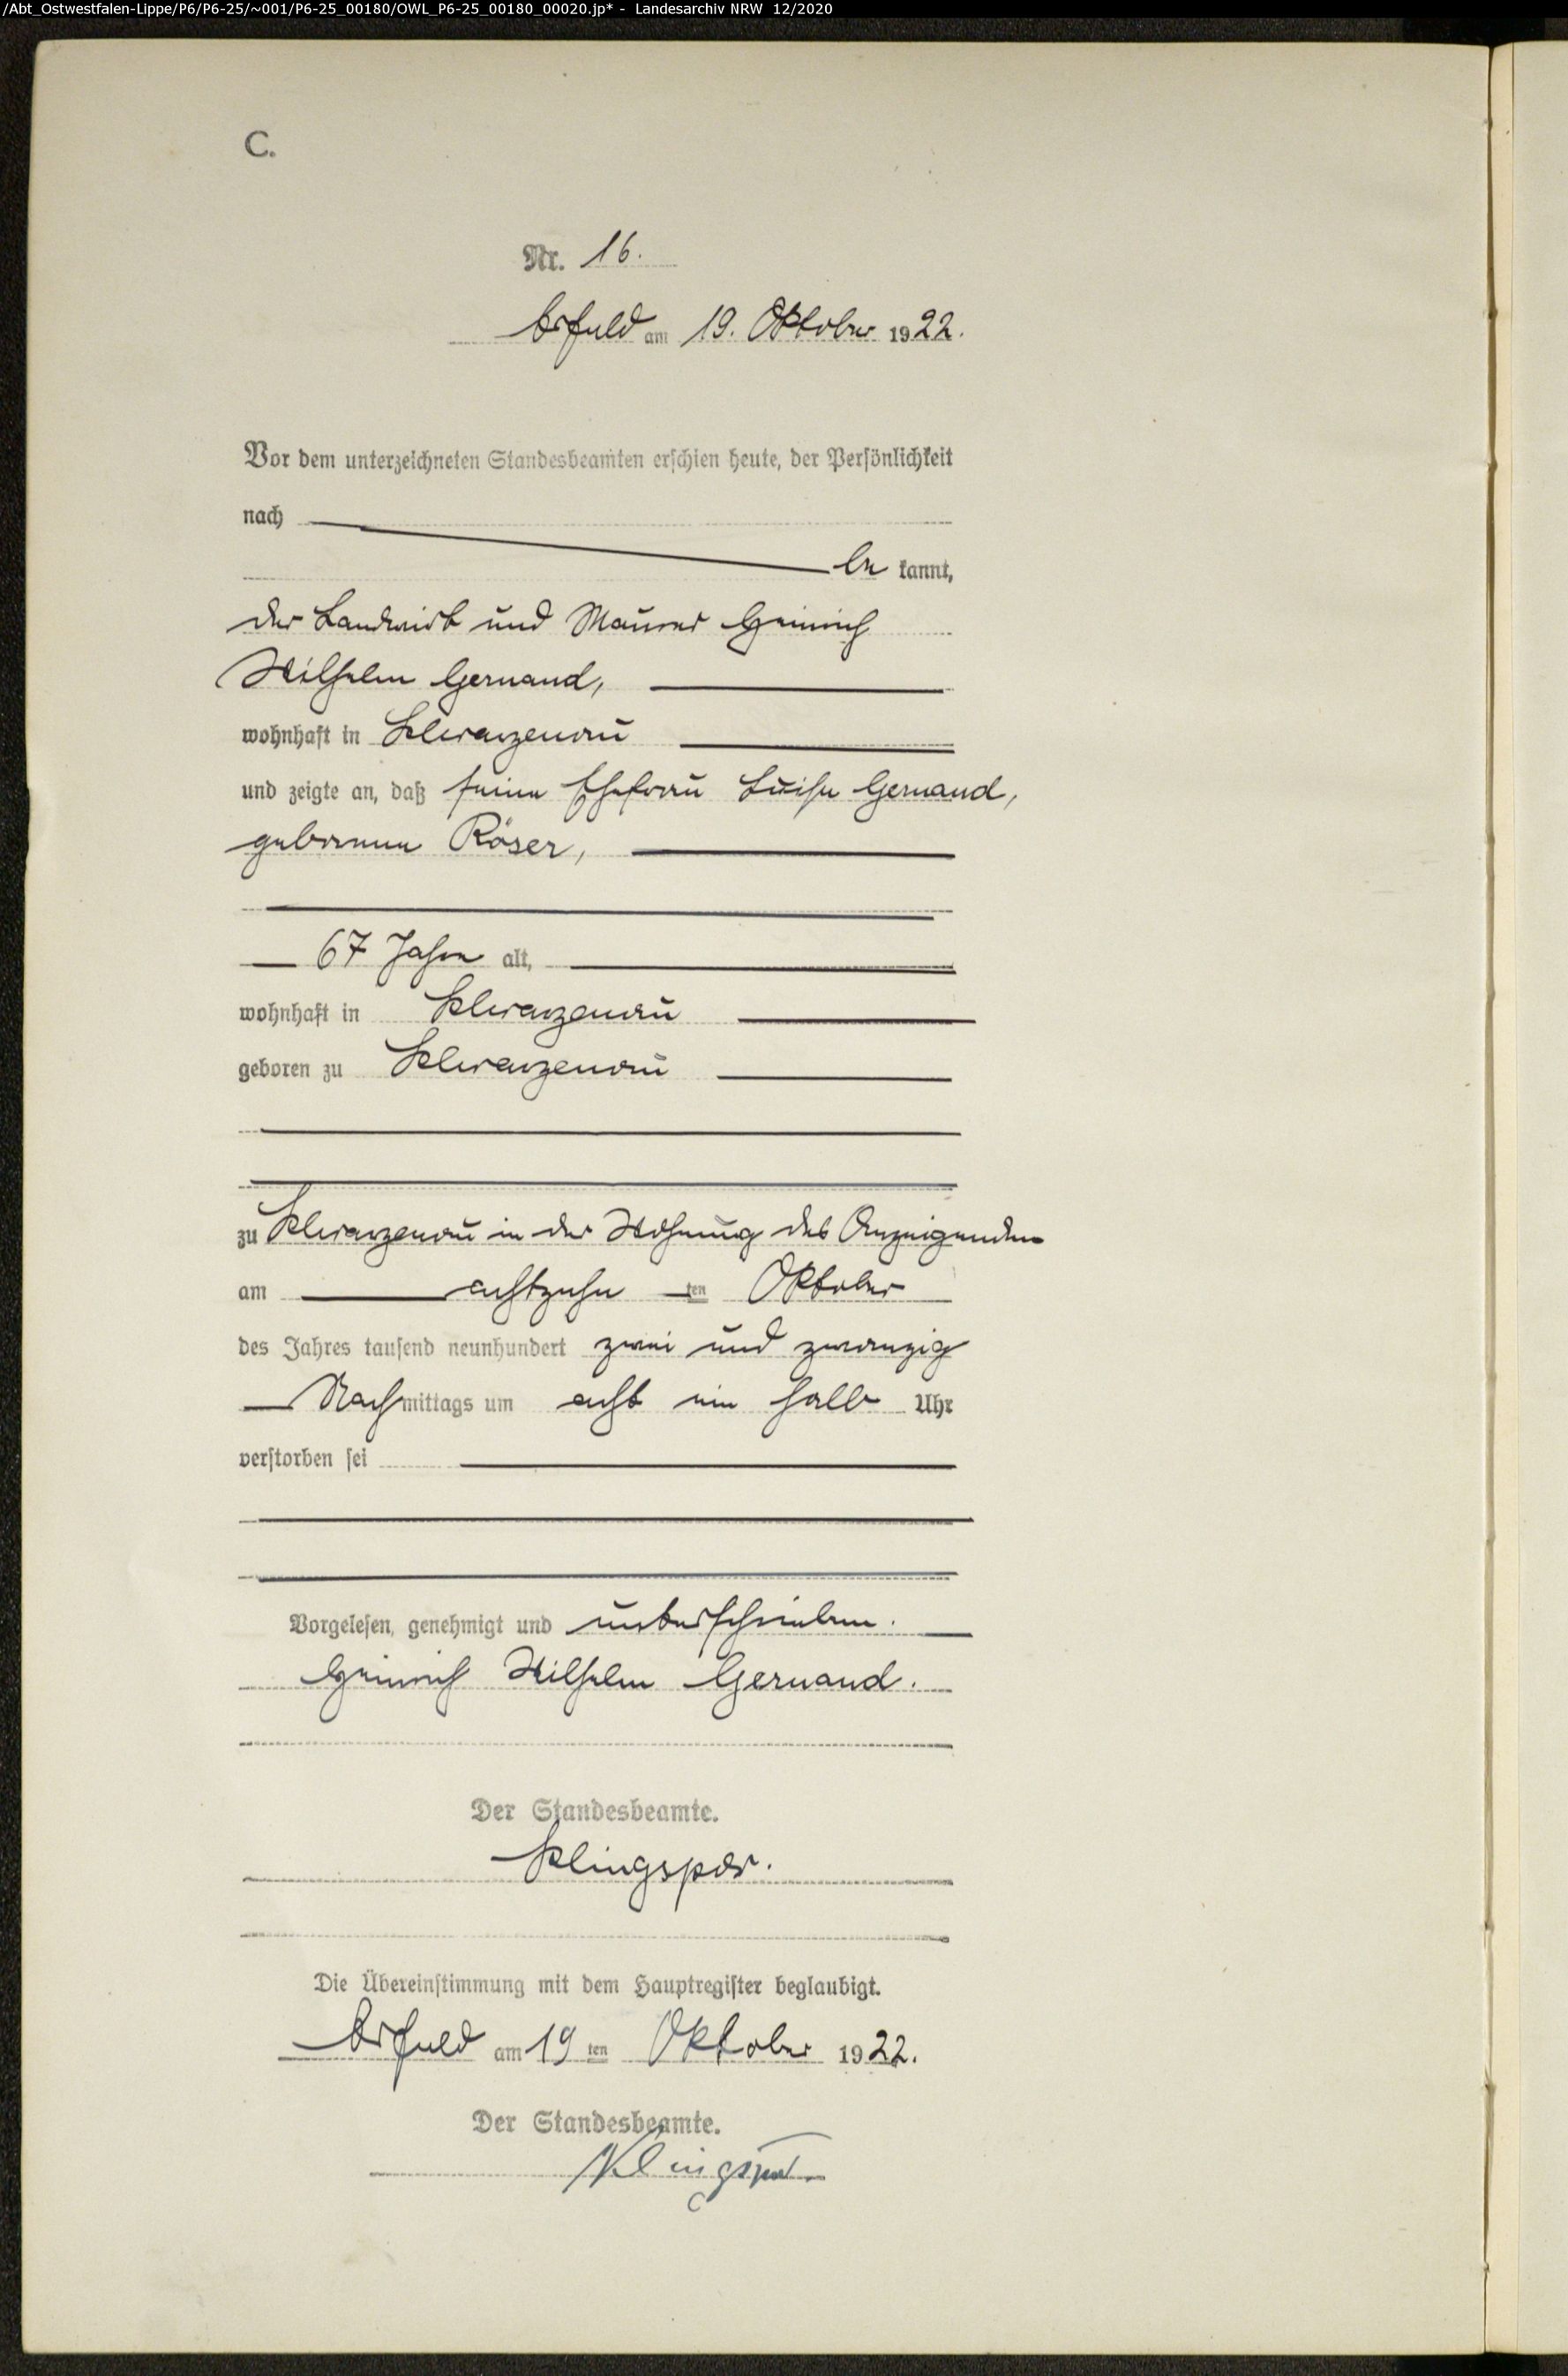 /Abt_Ostwestfalen-Lippe/P6/P6-25/~001/P6-25_00180/OWL_P6-25_00180_00020.jp* - Landesarchiv NRW 12/2020
C.
Nr. 16.
Arfeld am 19. Oktober 1922.
Vor dem unterzeichneten Standesbeamten erschien heute, der Persönlichkeit
nach
be kannt,
der Landwirt und Maurer Heinrich
Wilhelm Gernand,
wohnhaft in Schwarzenau
und zeigte an, daß seine Ehefrau Luise Gernand,
geborenen Röser,
67 Jahre alt,
wohnhaft in Schwarzenau
geboren zu Schwarzenau
zu Schwarzenau in der Wohnung des Anzeigenden
am achtzehn ten Oktober
des Jahres tausend neunhundert zwei und zwanzig
Nachmittags um acht ein halb Uhr
verstorben sei
Vorgelesen, genehmigt und unterschrieben.
Heinrich Wilhelm Gernand.
Der Standesbeamte.
Klingspor.
Die Übereinstimmung mit dem Hauptregister beglaubigt.
Arfeld am 19 ten Oktober 1922.
Der Standesbeamte.
Klingspor.